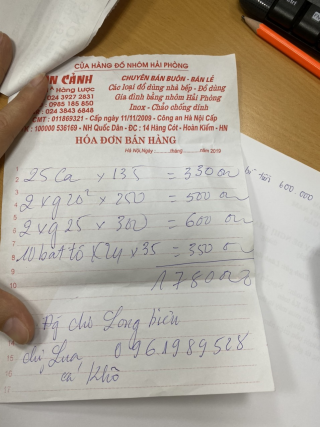 CỬA HÀNG ĐỒ NHÔM HẢI PHÒNG
CẢNH
Hàng Lược
024 3927 2831
0985 185 850
024 3843 6848
CHUYÊN BÁN BUÔN - BÁN LẺ
Các loại đồ dùng nhà bếp - Đồ dùng
Gia đình bằng nhôm Hải Phòng
Inox - Chảo chống dính
CMT : 011869321 - Cấp ngày 11/11/2009 - Công an Hà Nội Cấp
: 100000 536169 - NH Quốc Dân - ĐC : 14 Hàng Cót - Hoàn Kiếm - HN
HÓA ĐƠN BÁN HÀNG
Hà Nội, Ngày.........tháng.........năm 2019
25 Ca × 135 = 330
2 vg 20 × 250 = 500
tới 600 000
2 vg 25 × 300 = 600
10 bát tô × 35 = 350
1780
chợ Long biên
chị Lụa 0961989528
cá khô